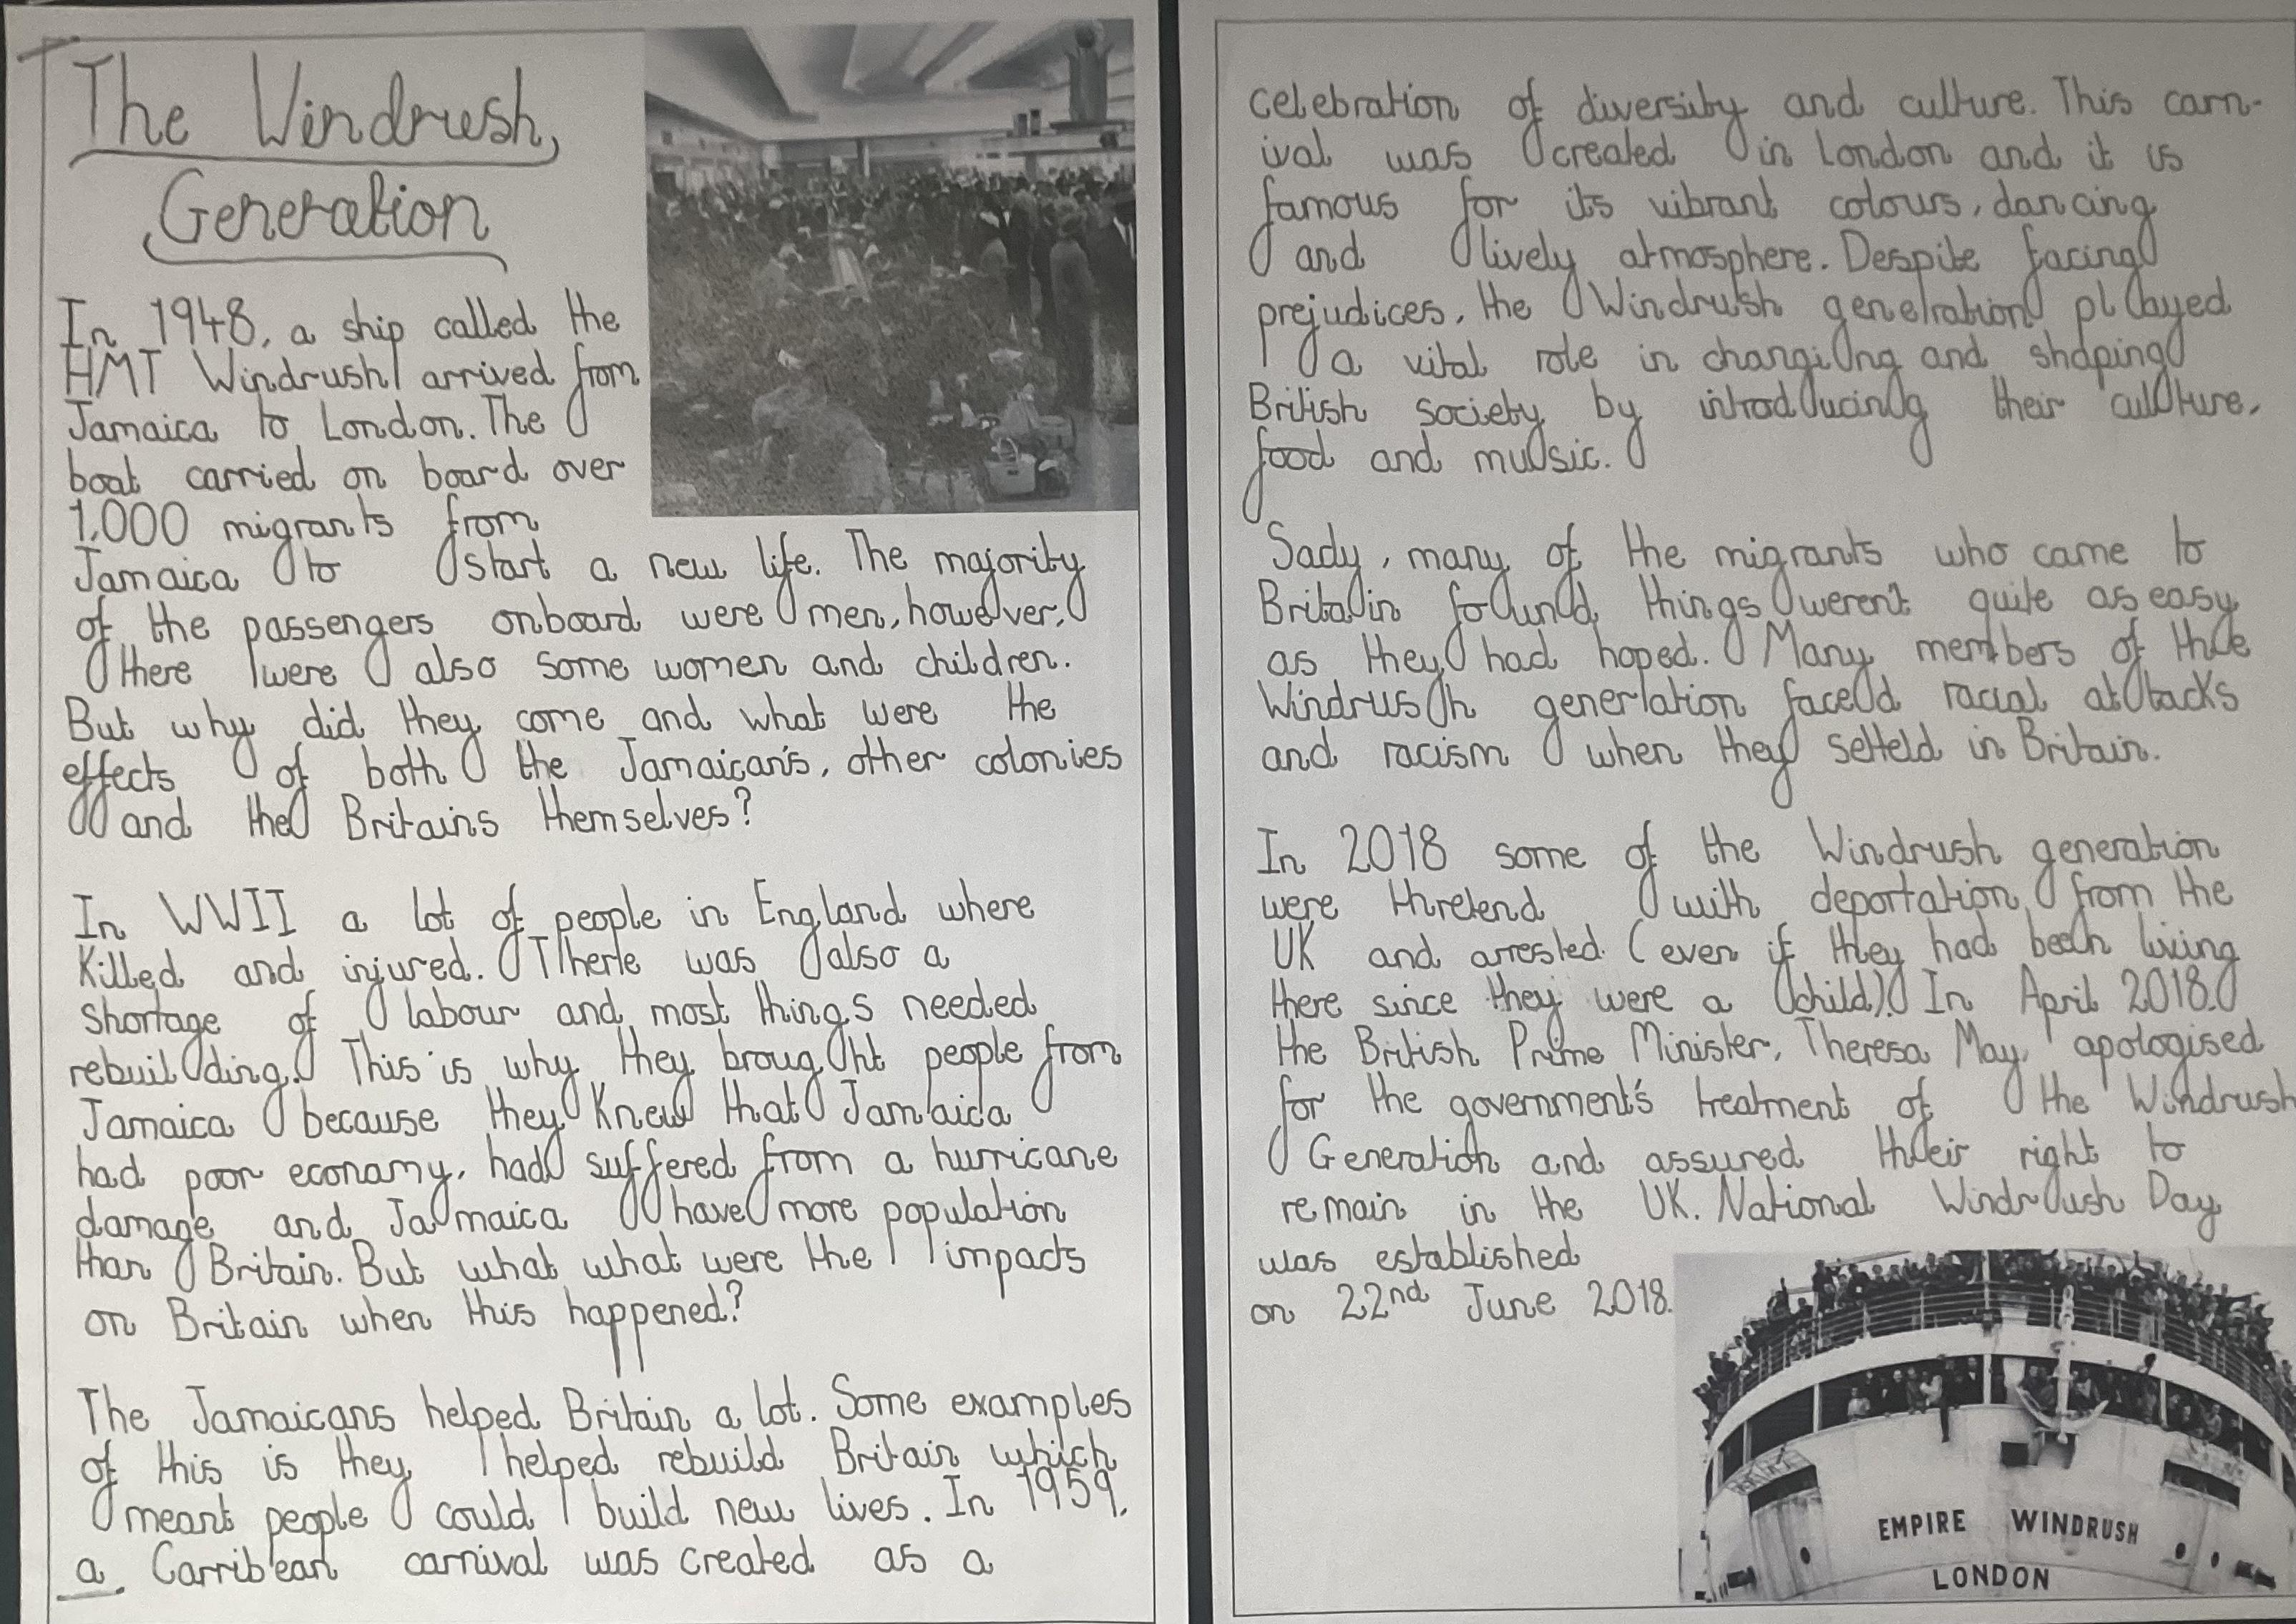 The Windrush
Generation
In 1948, a ship called the
HMT Windrush arrived from
Jamaica to London. The
boat carried on board over
1,000 migrants from
Jamaica to start a new life. The majority
of the passengers onboard were men, however,
there were also some women and children.
But why did they come and what were the
effects of both the Jamaican's, other colonies
and the Britains themselves?
In WWII a lot of people in England where
killed and injured. There was also a
shortage of labour and most things needed
rebuilding. This is why they brought people from
Jamaica because they knew that Jamaica
had poor economy, had suffered from a hurricane
damage and Jamaica have more population
than Britain. But what what were the impacts
on Britain when this happened?
The Jamaicans helped Britain a lot. Some examples
of this is they helped rebuild Britain which
meant people could build new lives. In 1959,
a Carribean carnival was created as a
celebration of diversity and culture. This carn-
ival was created in London and it is
famous for its vibrant colours, dancing
and lively atmosphere. Despite facing
prejudices, the Windrush generation played
a vital role in changing and shaping
British society by introducing their culture,
food and music.
Sady, many of the migrants who came to
Britain found things weren't quite as easy
as they had hoped. Many members of the
Windrush generation faced racial attacks
and racism when they setteld in Britain.
In 2018 some of the Windrush generation
were thretend with deportation from the
UK and arrested (even if they had been living
there since they were a child). In April 2018,
the British Prime Minister, Theresa May, apologised
for the government's treatment of the Windrush
Generation and assured their right to
remain in the UK. National Windrush Day
was established
on 22nd June 2018.
EMPIRE WINDRUSH
LONDON